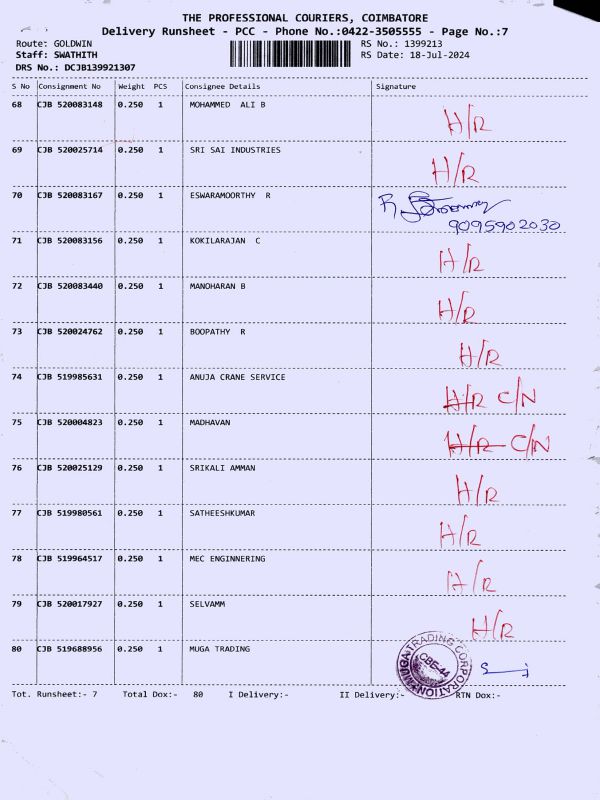 THE PROFESSIONAL COURIERS, COIMBATORE
Delivery Runsheet - PCC - Phone No.:0422-3505555 - Page No.:7
Route: GOLDWIN RS No.: 1399213
Staff: SWATHITH RS Date: 18-Jul-2024
DRS No.: DCJB139921307
S No Consignment No Weight PCS Consignee Details Signature
68 CJB 520083148 0.250 1 MOHAMMED ALI B H/R
69 CJB 520025714 0.250 1 SRI SAI INDUSTRIES H/R
70 CJB 520083167 0.250 1 ESWARAMOORTHY R
9095902030
71 CJB 520083156 0.250 1 KOKILARAJAN C H/R
72 CJB 520083440 0.250 1 MANOHARAN B H/R
73 CJB 520024762 0.250 1 BOOPATHY R H/R
74 CJB 519985631 0.250 1 ANUJA CRANE SERVICE H/R C/N
75 CJB 520004823 0.250 1 MADHAVAN H/R C/N
76 CJB 520025129 0.250 1 SRIKALI AMMAN H/R
77 CJB 519980561 0.250 1 SATHEESHKUMAR H/R
78 CJB 519964517 0.250 1 MEC ENGINNERING H/R
79 CJB 520017927 0.250 1 SELVAMM H/R
80 CJB 519688956 0.250 1 MUGA TRADING
MUGA TRADING CORPORATION
CBE-44
Tot. Runsheet:- 7 Total Dox:- 80 I Delivery:- II Delivery:- RTN Dox:-